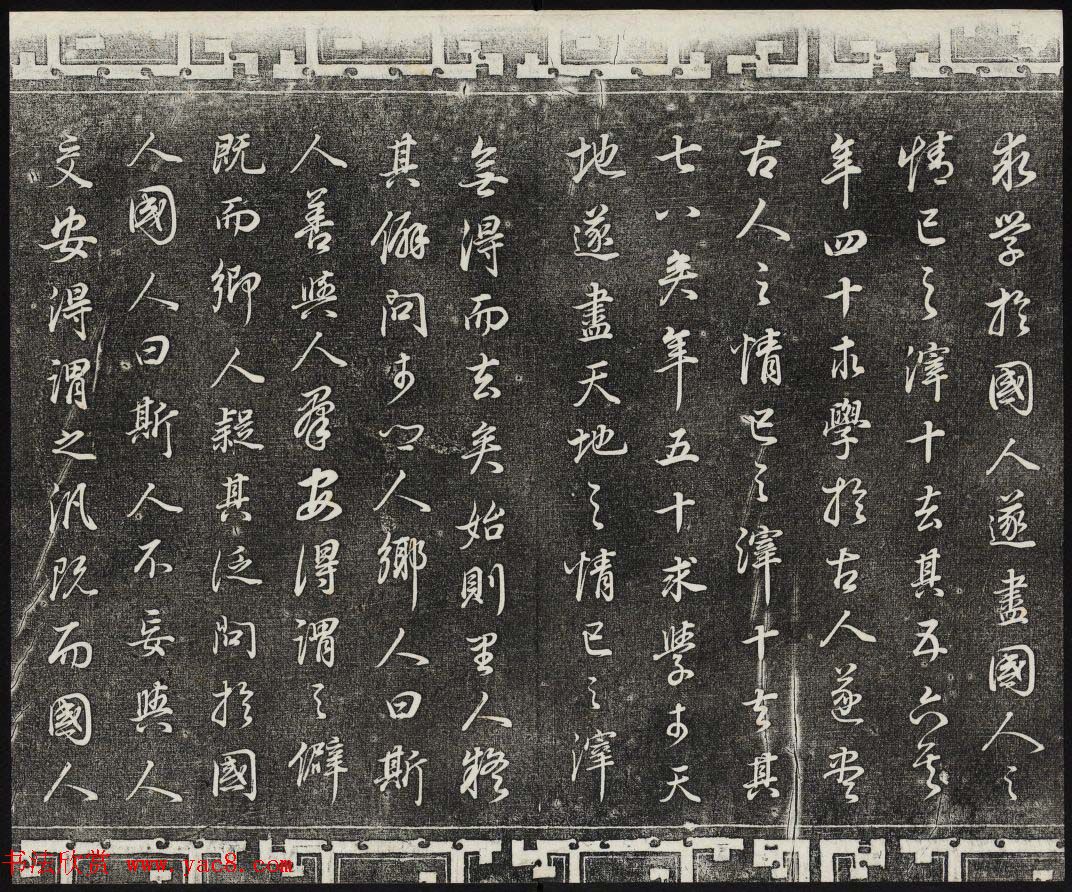 求学於國人遂盡國人之
情已之滓十去其五六矣
年四十求學於古人遂盡
古人之情已之滓十去其
七八矣年五十求學於天
地遂盡天地之情已之滓
無得而去矣始則里人疑
其僻問於鄉人鄉人曰斯
人善與人羣安得謂之僻
既而鄉人疑其泛問於國
人國人曰斯人不妄與人
交安得謂之汎既而國人
书法欣赏 www.yac8.com